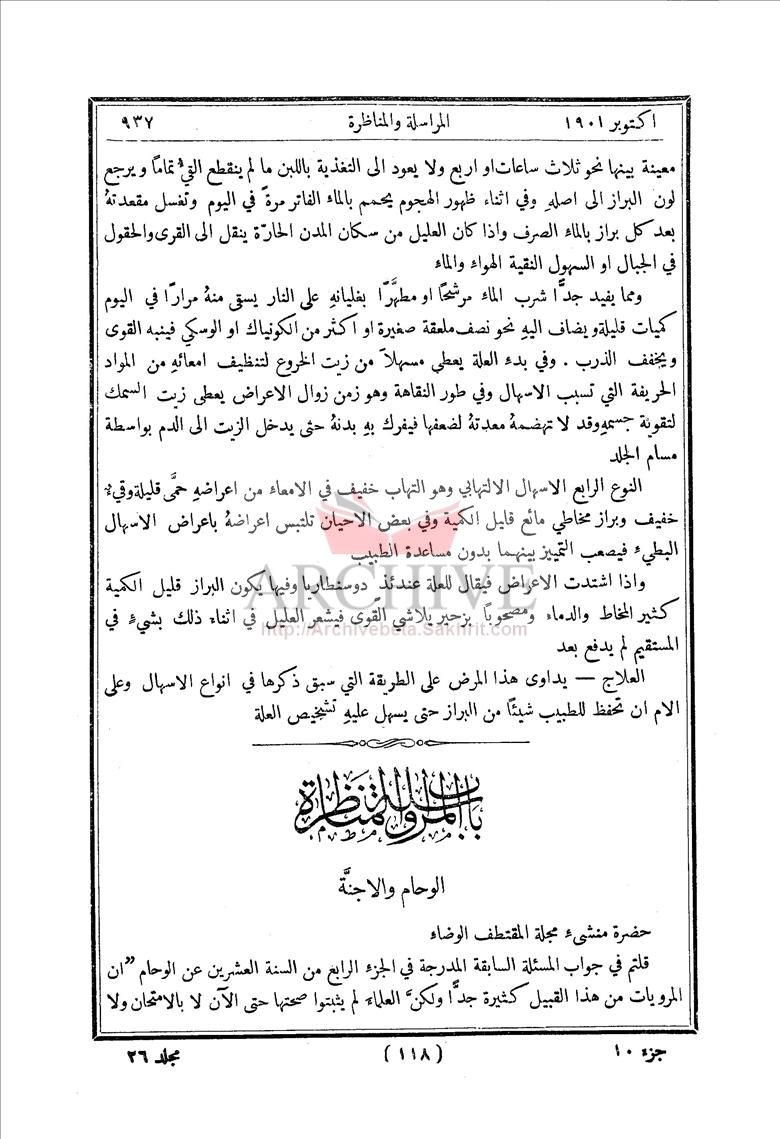 اكتوبر ١٩٠١ المراسلة والمناظرة ٩٣٧
معينة بينها نحو ثلاث ساعات او اربع ولا يعود الى التغذية باللبن ما لم ينقطع القيءُ تمامًا ويرجع
لون البراز الى اصلهِ وفي اثناء ظهور الهجوم يحمم بالماء الفاتر مرةً في اليوم وتغسل مقعدتهُ
بعد كل براز بالماء الصرف واذا كان العليل من سكان المدن الحارّة ينقل الى القرى والحقول
في الجبال او السهول النقية الهواء والماء
ومما يفيد جدًّا شرب الماء مرشحًا او مطهَّرًا بغليانهِ على النار يسقى منهُ مرارًا في اليوم
كميات قليلة ويضاف اليهِ نحو نصف ملعقة صغيرة او اكثر من الكونياك او الوسكي فينبه القوى
ويخفف الذرب . وفي بدء العلة يعطى مسهلاً من زيت الخروع لتنظيف امعائهِ من المواد
الحريفة التي تسبب الاسهال وفي طور النقاهة وهو زمن زوال الاعراض يعطى زيت السمك
لتقوية جسمهِ وقد لا تهضمهُ معدتهُ لضعفها فيفرك بهِ بدنهُ حتى يدخل الزيت الى الدم بواسطة
مسام الجلد
النوع الرابع الاسهال الالتهابي وهو التهاب خفيف في الامعاء من اعراضهِ حمَّى قليلة وقيءٌ
خفيف وبراز مخاطي مائع قليل الكمية وفي بعض الاحيان تلتبس اعراضهُ باعراض الاسهال
البطيء فيصعب التمييز بينهما بدون مساعدة الطبيب
واذا اشتدت الاعراض فيقال للعلة عندئذ دوسنطاريا وفيها يكون البراز قليل الكمية
ARCHIVE
كثير المخاط والدماء ومصحوبًا بزحير يلاشي القوى فيشعر العليل في اثناء ذلك بشيءٍ في
http://Archivebeta.Sakhrit.com
المستقيم لم يدفع بعد
العلاج — يداوى هذا المرض على الطريقة التي سبق ذكرها في انواع الاسهال وعلى
الام ان تحفظ للطبيب شيئًا من البراز حتى يسهل عليهِ تشخيص العلة
باب المراسلة والمناظرة
الوحام والاجنَّة
حضرة منشىء مجلة المقتطف الوضاء
قلتم في جواب المسئلة السابقة المدرجة في الجزء الرابع من السنة العشرين عن الوحام ”ان
المرويات من هذا القبيل كثيرة جدًّا ولكنَّ العلماء لم يثبتوا صحتها حتى الآن لا بالامتحان ولا
جزء ١٠ (١١٨) مجلد ٢٦